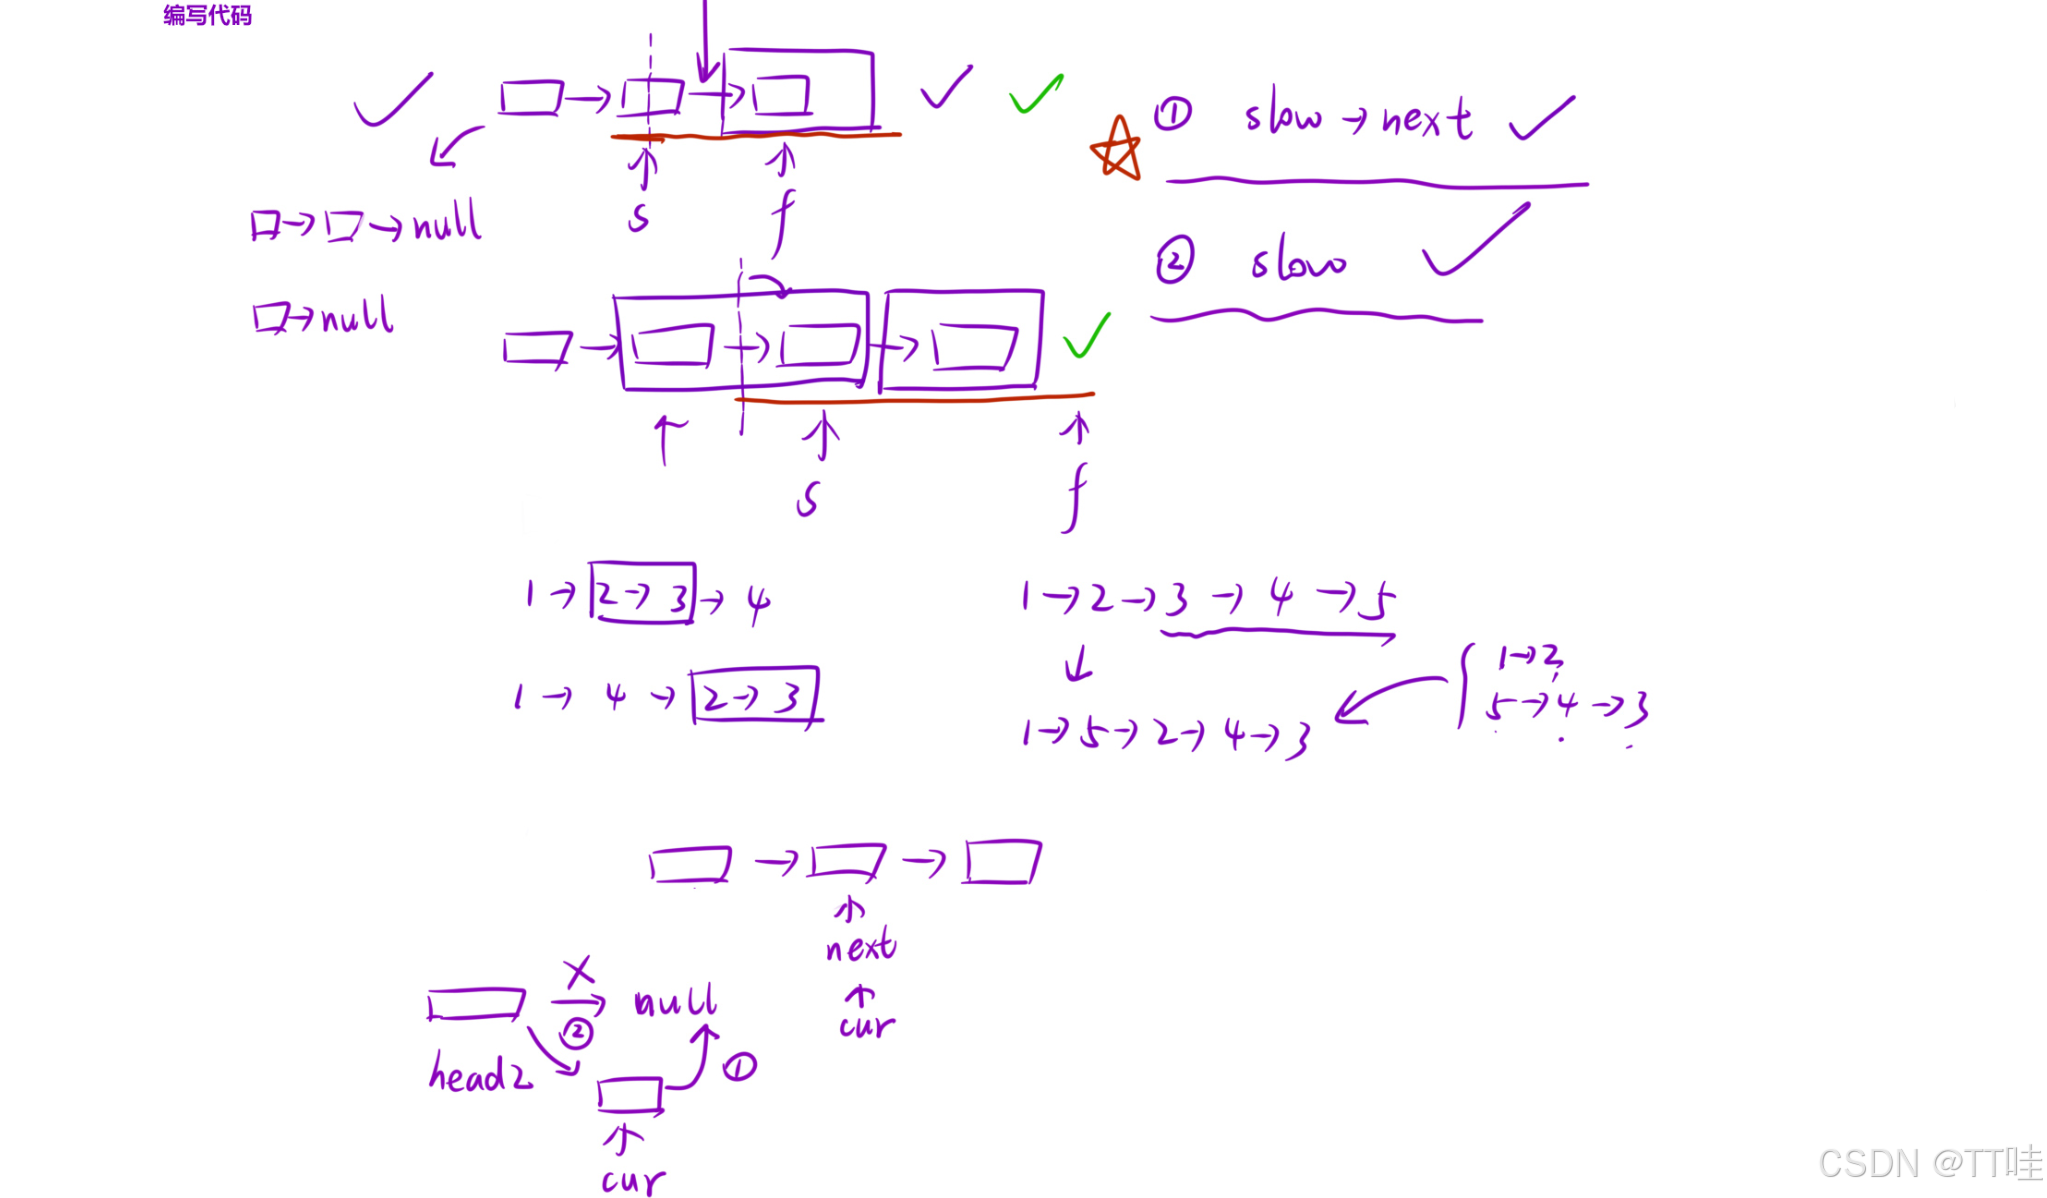 编写代码
① slow → next
s f
□→□→null
② slow
□→null
s f
1 → 2 → 3 → 4
1 → 2 → 3 → 4 → 5
1 → 4 → 2 → 3
1 → 2
5 → 4 → 3
1 → 5 → 2 → 4 → 3
next
cur
× ②
null
①
head2
cur
CSDN @TT哇